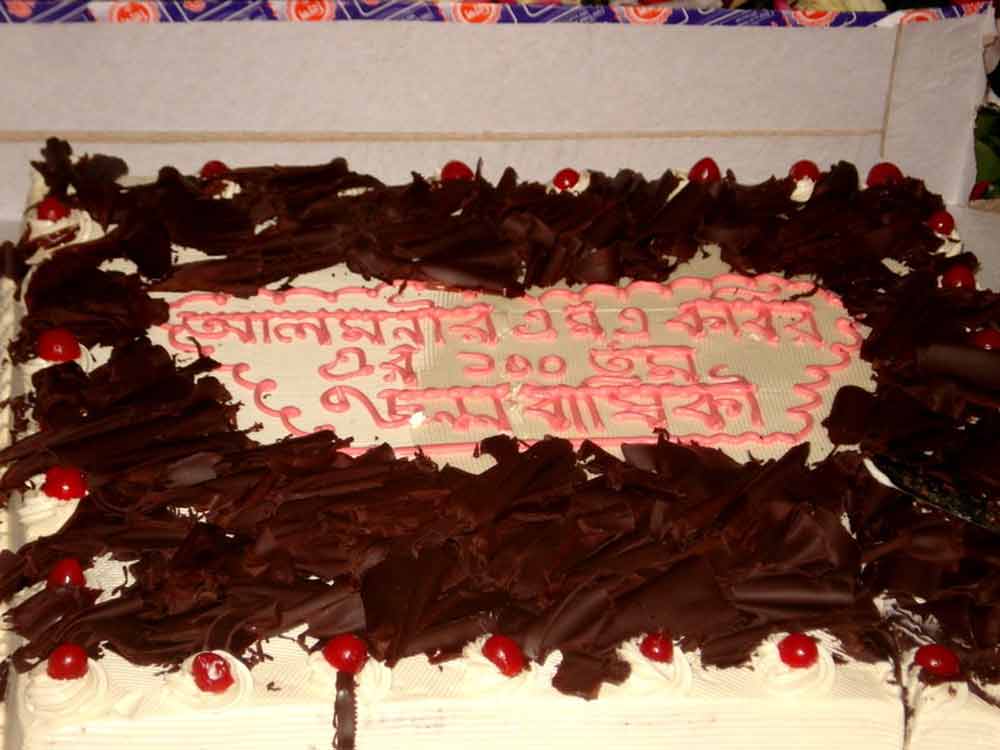 আলমনীর এম এ কবীর
এর ১০০ তম
জন্ম বার্ষিকী